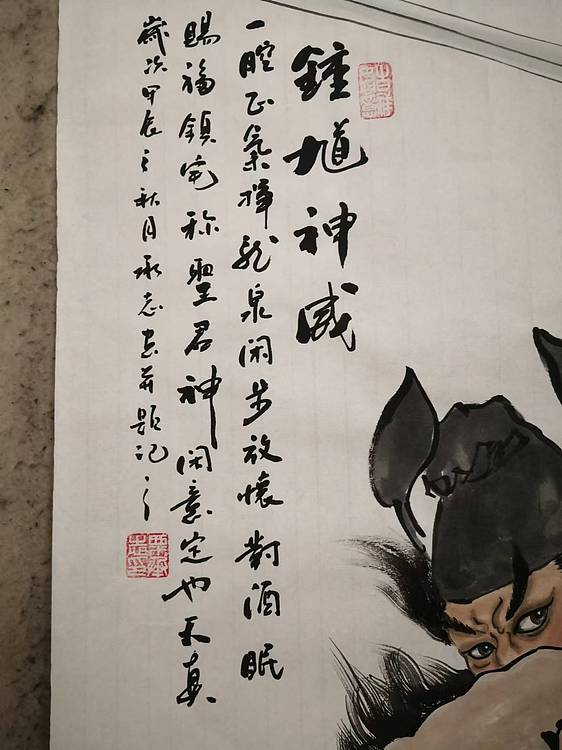 鍾馗神威
一腔正氣揮龍泉闲步放懷對酒眠
賜福鎮宅称聖君神闲意定也天真
歲次甲辰之秋月承志画并題记之